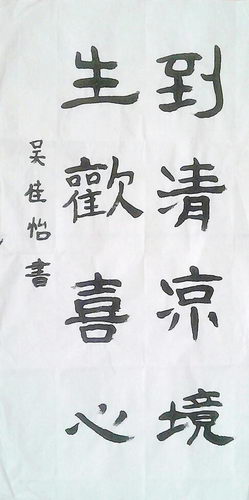 到清凉境
生歡喜心
吴佳怡書